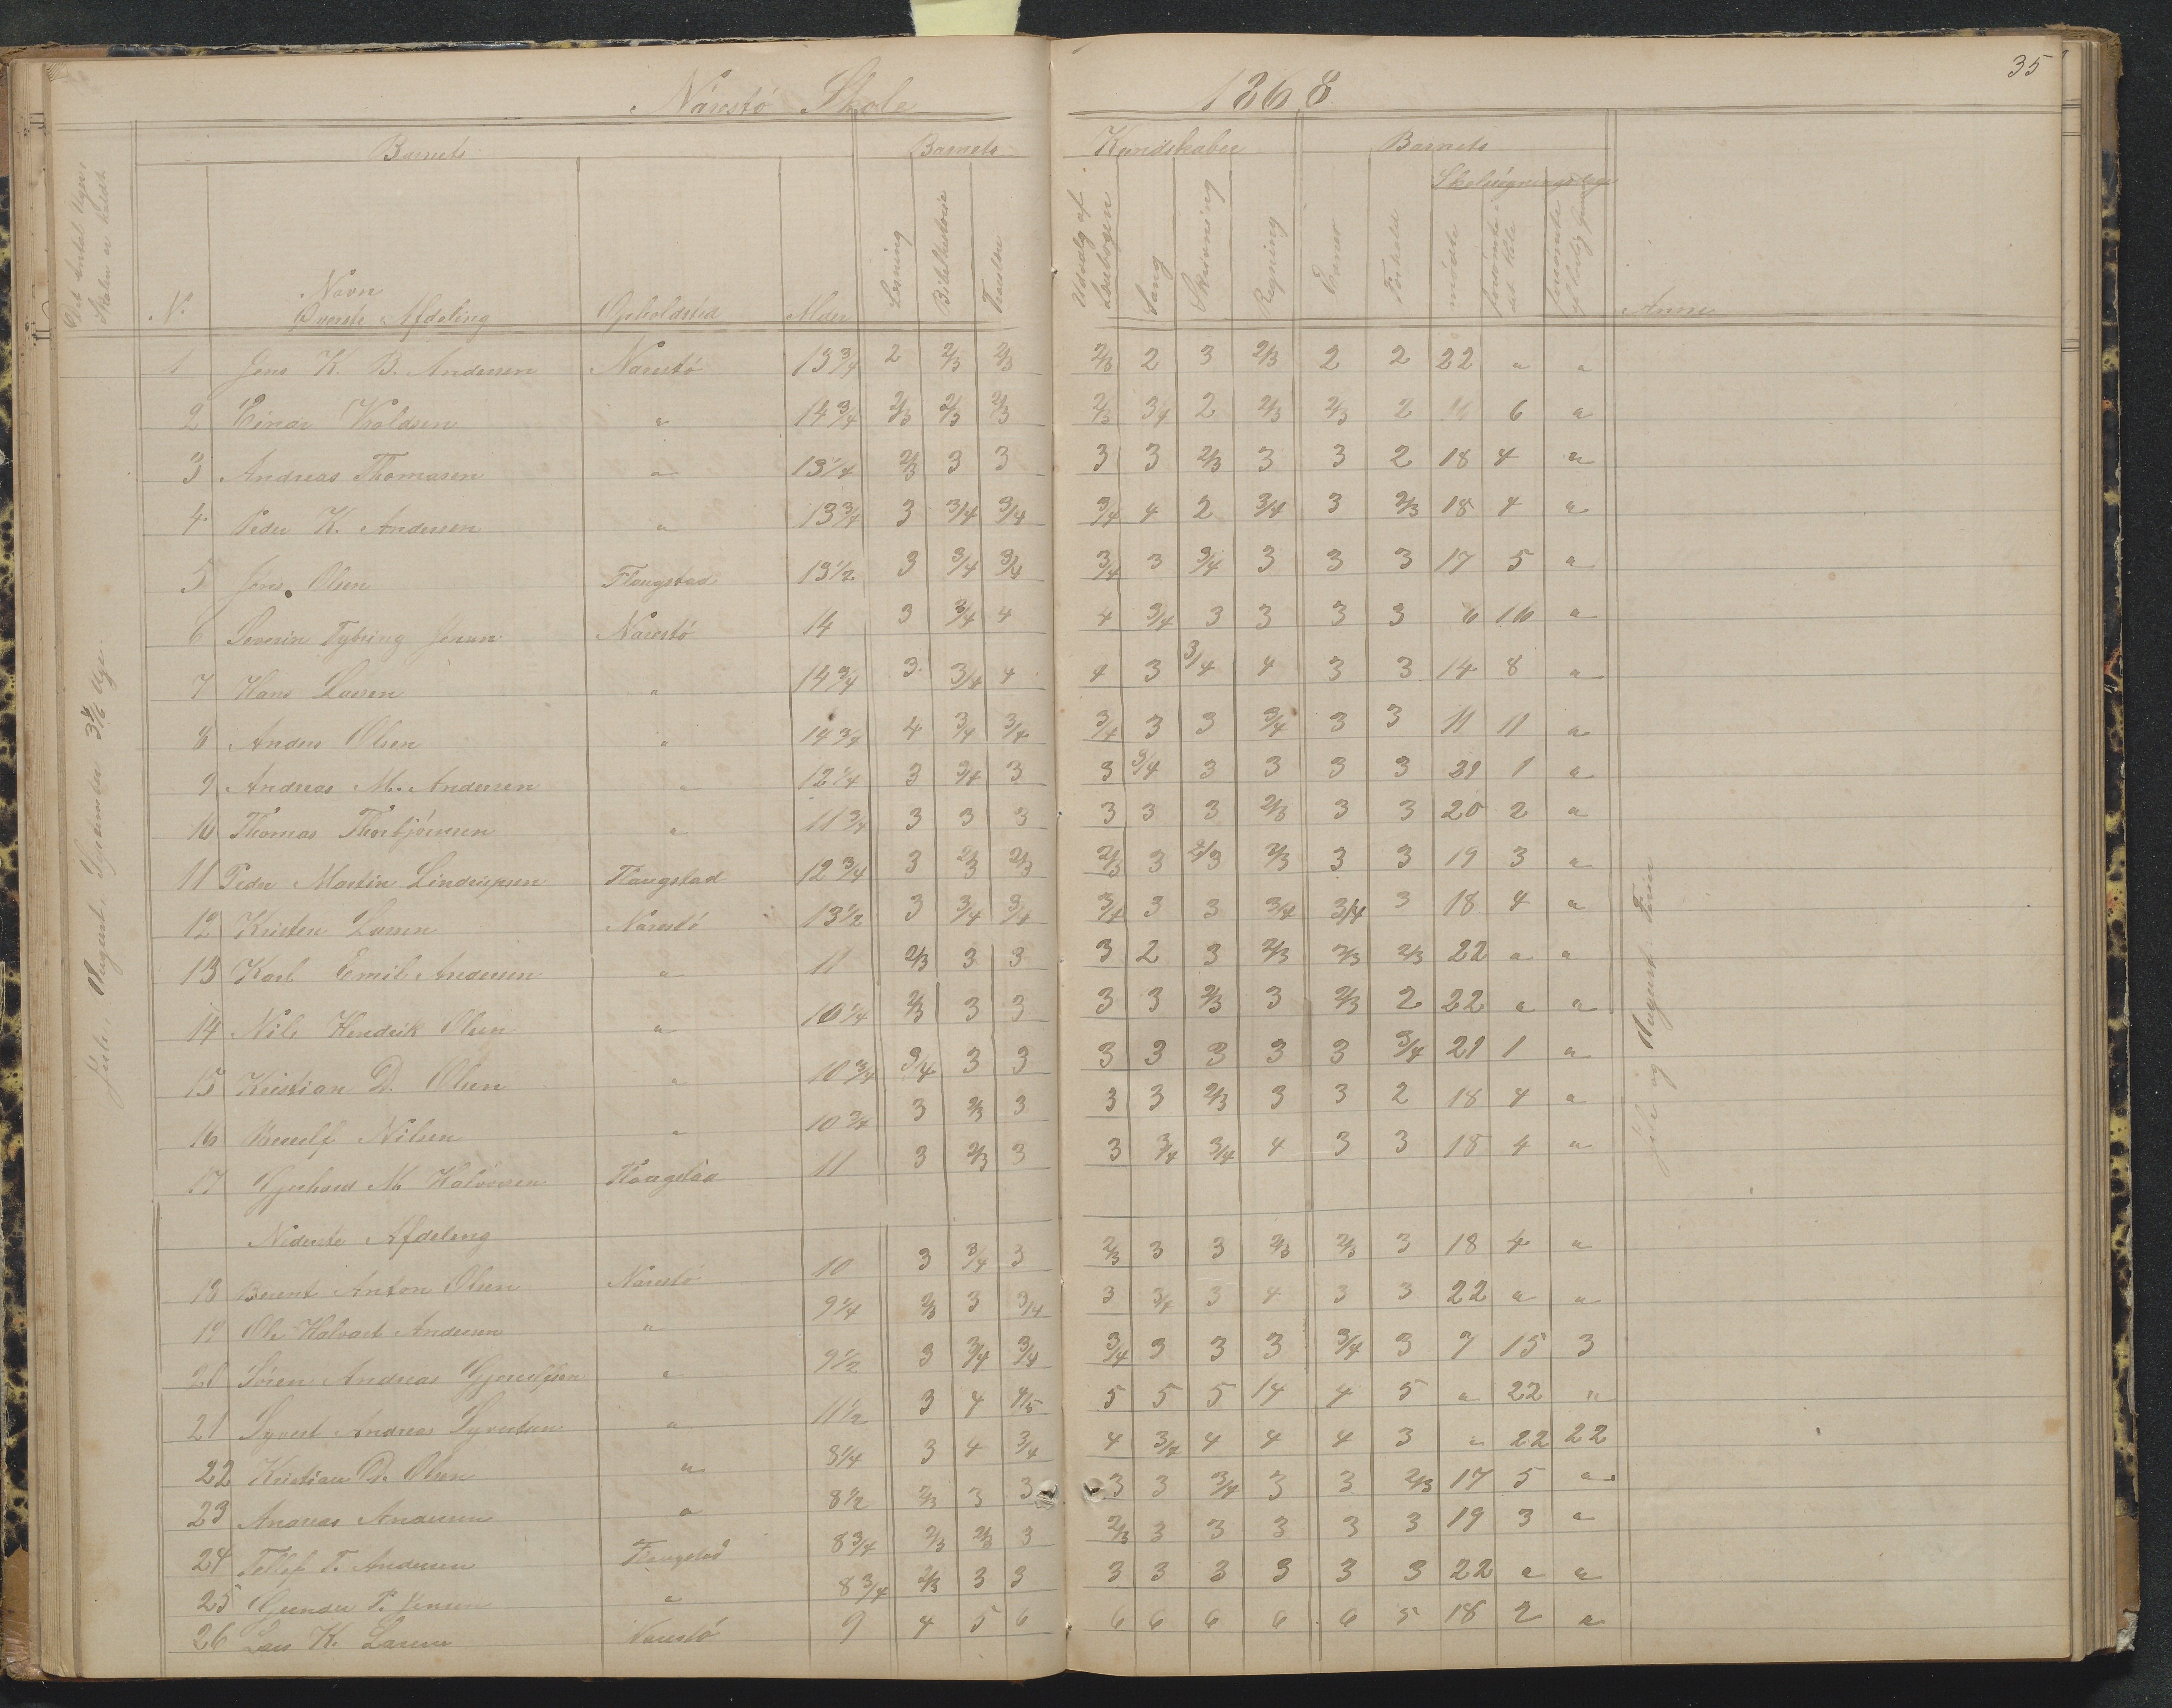 35
Narestö Skole 1868.
Barnets Barnets Kundskaber Barnets
Skolesøgningsdage
Det Antal Uger Skolen er holdt
No. Navn Opholdsted Alder Læsning Bibelhistorie Troeslære Udvalg af Læsebogen Sang Skrivning Regning Evner Forhold mødte forsømte i det Hele forsømte af lovlig Grund Anm
Øverste Afdeling
1 Jens K. B. Andersen Narestö 13 3/4 2 2/3 2/3 2/3 2 3 2/3 2 2 22 " "
2 Einar Voldsen " 14 3/4 2/3 2/3 2/3 2/3 3/4 2 2/3 2/3 2 16 6 "
3 Andreas Thomasen " 13 1/4 2/3 3 3 3 3 2/3 3 3 2 18 4 "
4 Peder K. Andersen " 13 3/4 3 3/4 3/4 3/4 4 2 3/4 3 2/3 18 4 "
5 Jens Olsen Flangstad 13 1/2 3 3/4 3/4 3/4 3 3/4 3 3 3 17 5 "
6 Severin Tybring Jensen Narestö 14 3 3/4 4 4 3/4 3 3 3 3 6 16 "
7 Hans Larsen " 14 3/4 3 3/4 4 4 3 3/4 4 3 3 14 8 "
8 Anders Olsen " 14 3/4 4 3/4 3/4 3/4 3 3 3/4 3 3 11 11 "
9 Andreas M. Andersen " 12 1/4 3 3/4 3 3 3/4 3 3 3 3 21 1 "
10 Thomas Thorbjörnsen " 11 3/4 3 3 3 3 3 3 2/3 3 3 20 2 "
11 Peder Martin Lindrupsen Flangstad 12 3/4 3 2/3 2/3 2/3 3 2/3 2/3 3 3 19 3 "
12 Kristen Larsen Narestö 13 1/2 3 3/4 3/4 3/4 3 3 3/4 3/4 3 18 4 "
13 Karl Emil Andersen " 11 2/3 3 3 3 2 3 2/3 2/3 2/3 22 " "
14 Nils Hendrik Olsen " 10 1/4 2/3 3 3 3 3 2/3 3 2/3 2 22 " "
15 Kristian D. Olsen " 10 3/4 3/4 3 3 3 3 3 3 3 3/4 21 1 "
16 Nilsen " 10 3/4 3 2/3 3 3 3 2/3 3 3 2 18 4 "
17 Gjerhard M. Halvorsen Flangstad 11 3 2/3 3 3 3/4 3/4 4 3 3 18 4 "
Nederste Afdeling
18 Berent Anton Olsen Narestö 10 3 3/4 3 2/3 3 3 2/3 2/3 3 18 4 "
19 Ole Halvart Andersen " 9 1/4 2/3 3 3/4 3 3/4 3 4 3 3 22 " "
20 Sören Andreas Gjerulfsen " 9 1/2 3 3/4 3/4 3/4 3 3 3 3/4 3 7 15 3
21 Syvert Andreas Syvertsen " 11 1/2 3 4 4/5 5 5 5 14 4 5 " 22 "
22 Kristian D. Olsen " 8 1/4 3 4 3/4 4 3/4 4 4 4 3 " 22 22
23 Andreas Andersen " 8 1/2 2/3 3 3 3 3 3/4 3 3 2/3 17 5 "
24 Tellef T. Andersen Flangstad 8 3/4 2/3 2/3 3 2/3 3 3 3 3 3 19 3 "
25 Gunder P. Jensen " 8 3/4 2/3 3 3 3 3 3 3 3 3 22 " "
26 Lars K. Larsen Narestö 9 4 5 6 6 6 6 6 6 5 18 2 "
Juli, August, September 3 4/6 Uge.
Juli og August Ferie